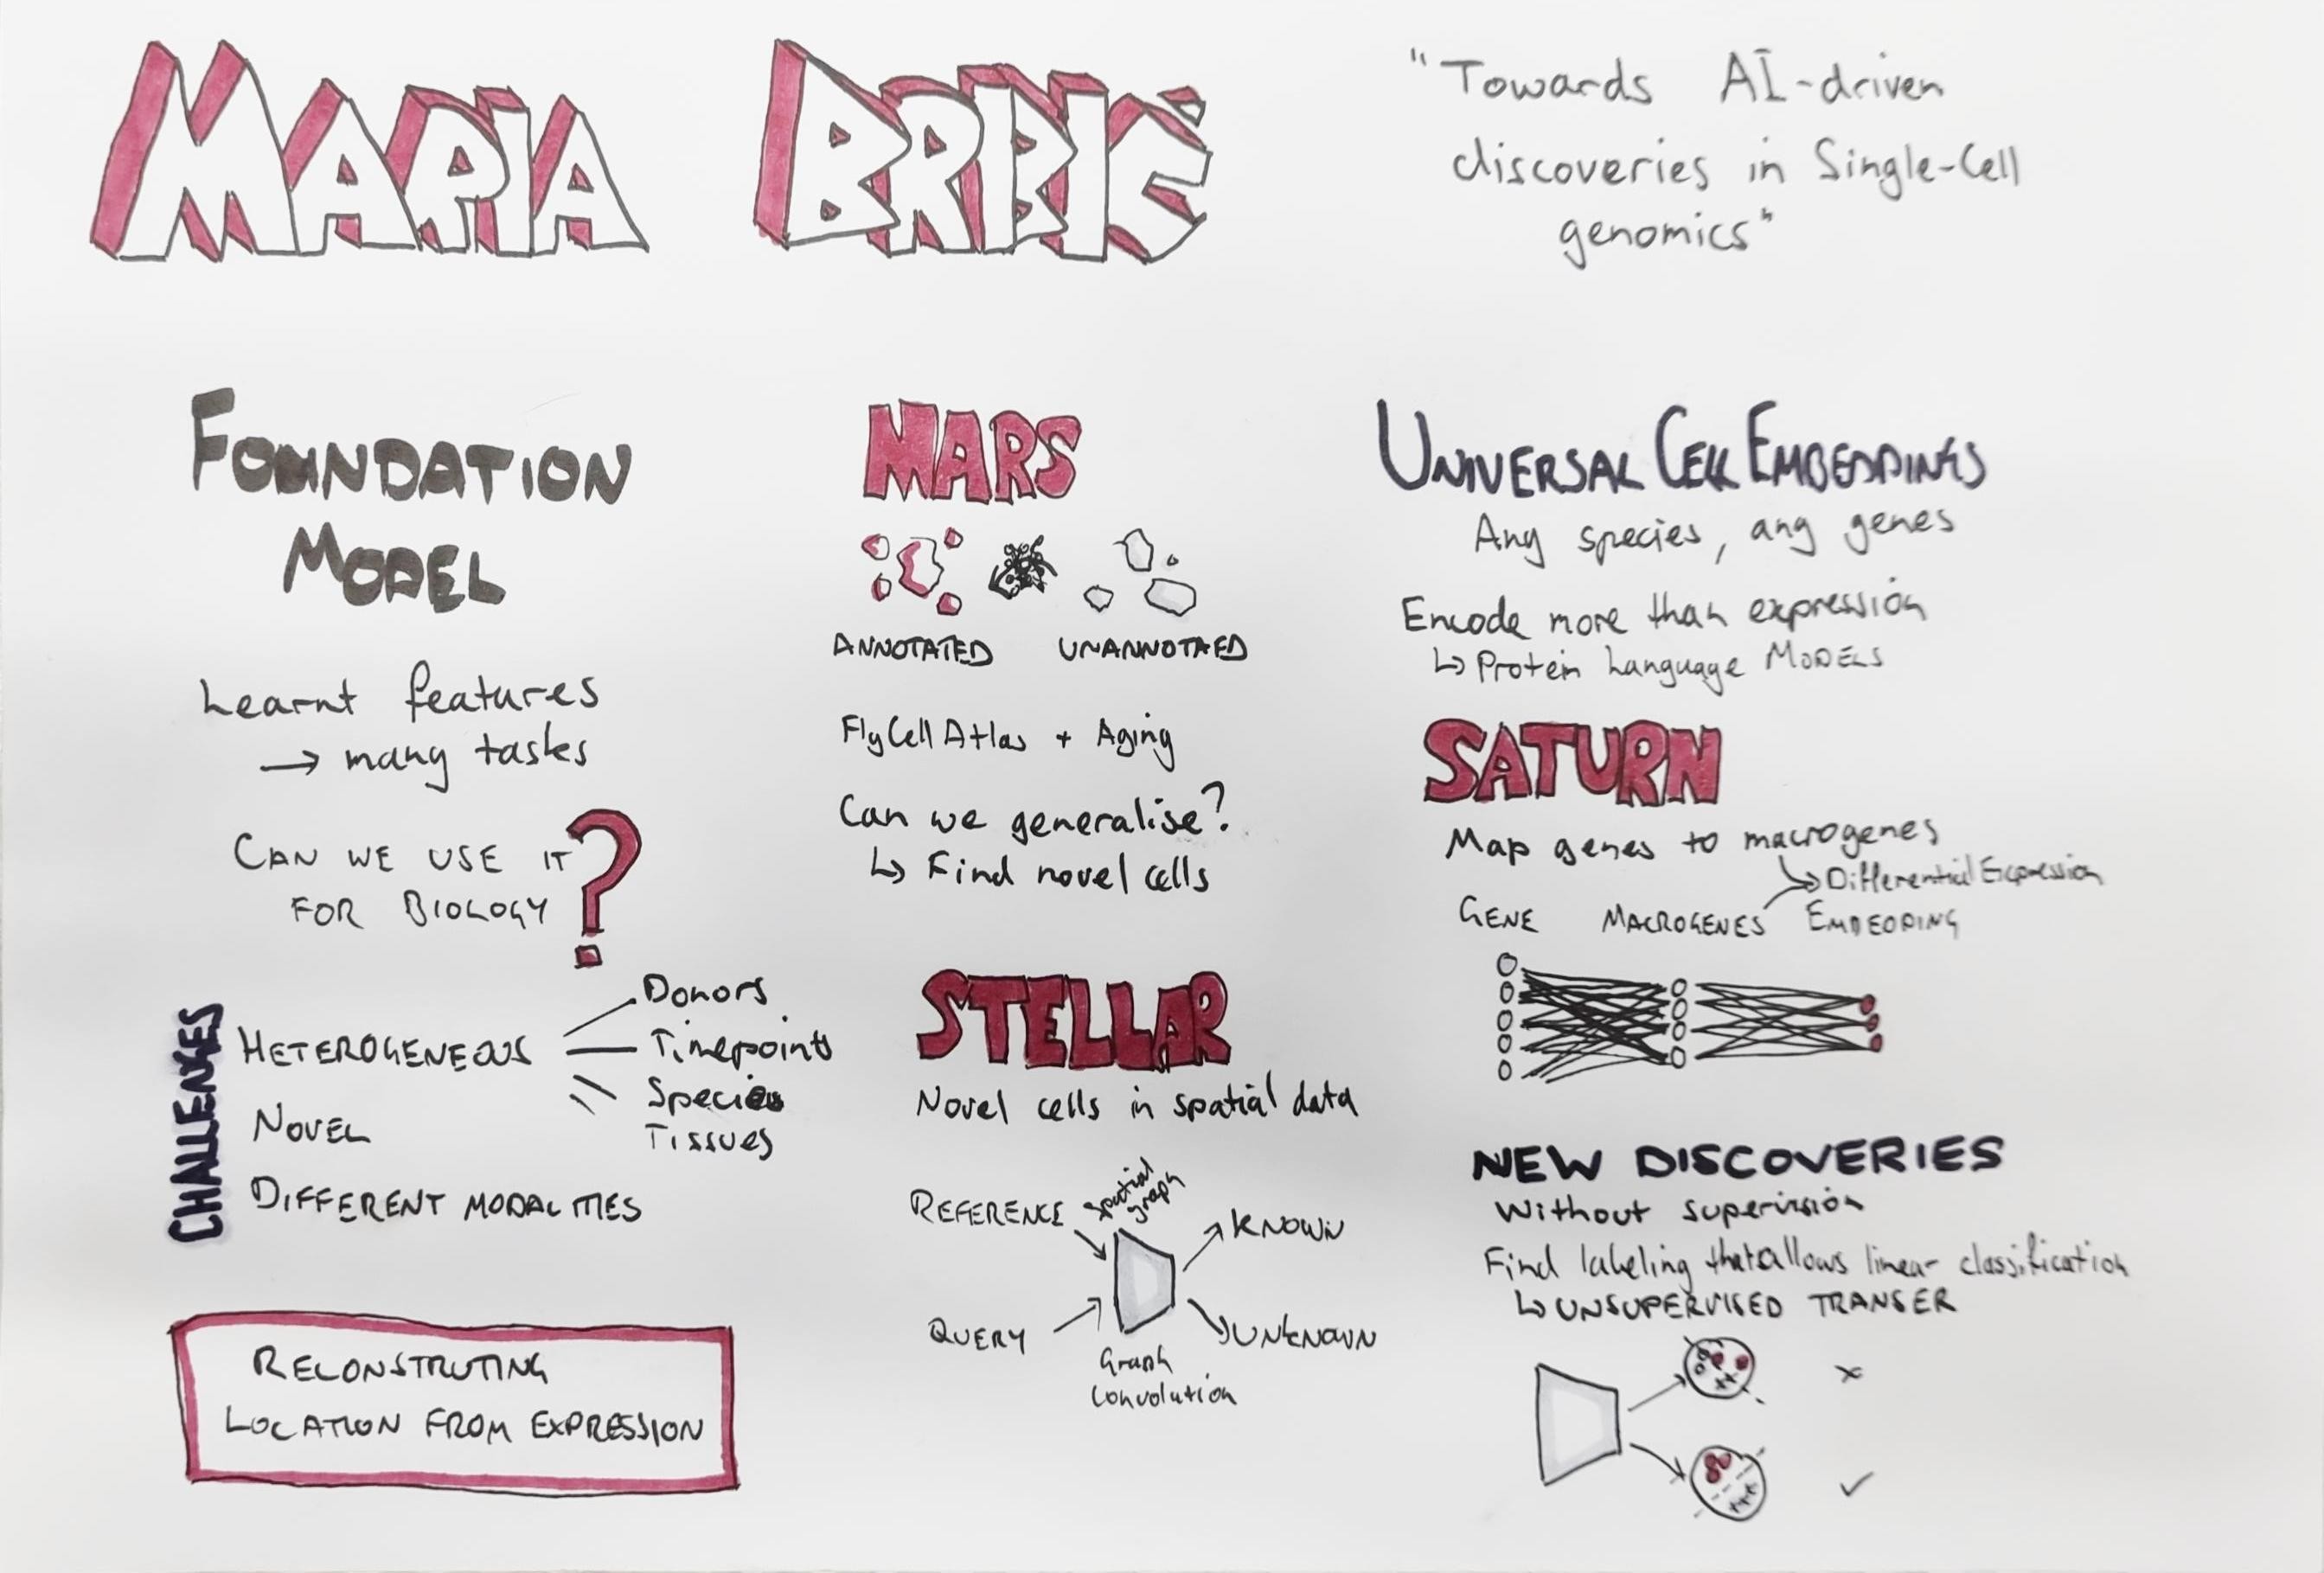 MARIA BRBIĆ
"Towards AI-driven
discoveries in Single-Cell
genomics"
FOUNDATION
MODEL
Learnt features
→ many tasks
CAN WE USE IT
FOR BIOLOGY ?
CHALLENGES
HETEROGENEOUS
Donors
Timepoints
Species
Tissues
NOVEL
DIFFERENT MODALITIES
RECONSTRUTING
LOCATION FROM EXPRESSION
MARS
ANNOTATED UNANNOTAED
FlyCellAtlas + Aging
Can we generalise?
↳ Find novel cells
STELLAR
Novel cells in spatial data
REFERENCE
Spatial
graph
KNOWN
QUERY
UNKNOWN
Graph
Convolution
UNIVERSAL CELL EMBEDDINGS
Any species, any genes
Encode more than expression
↳ Protein Language MODELS
SATURN
Map genes to macrogenes
→ Differential Expression
GENE MACROGENES EMBEDDING
NEW DISCOVERIES
Without supervision
Find labeling that allows linear classification
↳ UNSUPERVISED TRANSER
x
✓